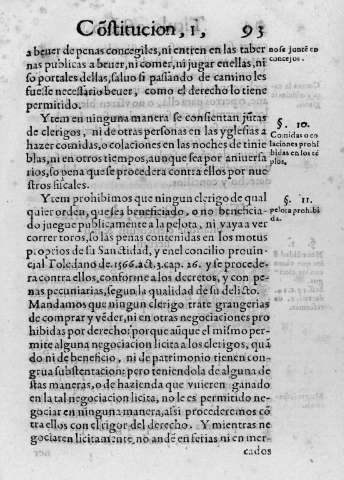 Cõstitucion, 1, 93
a beuer de penas concegiles, ni entren en las taber
nas publicas a beuer, ni comer, ni jugar en ellas, ni
so portales dellas, saluo si pasando de camino les
fuesse necessario beuer, como el derecho lo tiene
permitido.
no se junte en
concejos.
Ytem en ninguna manera se consientan jũtas
de clerigos, ni de otras personas en las yglesias a
hazer comidas, o colaciones en las noches de tinie
blas, ni en otros tiempos, aunque sea por aniuersa
rios, so pena que se procedera contra ellos por nue
stros fiscales.
§. 10.
Comidas o co
laciones prohi
bidas en los tẽ
plos.
Ytem prohibimos que ningun clerigo de qual
quier orden, que sea beneficiado, o no beneficia-
do juegue publicamente a la pelota, ni vaya a ver
correr toros, so las penas contenidas en los motus
proprios de su Sanctidad, y en el concilio prouin
cial Toledano de. 1566. act. 3. cap. 26. y se procede-
ra contra ellos, conforme a los decretos, y con pe-
nas pecuniarias, segun la qualidad de su delicto.
§. 11.
pelota prohibi
da.
Mandamos que ningun clerigo trate grangerias
de comprar y vẽder, ni en otras negociaciones pro
hibidas por derecho: porque aũque el mismo per-
mite alguna negociacion licita a los clerigos, quã
do ni de beneficio, ni de patrimonio tienen con-
grua substentacion: pero teniendola de alguna de
stas maneras, o de hazienda que vuieren ganado
en la tal negociacion licita, no les es permitido ne-
gociar en ninguna manera, assi procederemos cõ
tra ellos con el rigor del derecho. Y mientras ne
gociaren licitamente, no andẽ en ferias ni en mer-
cados